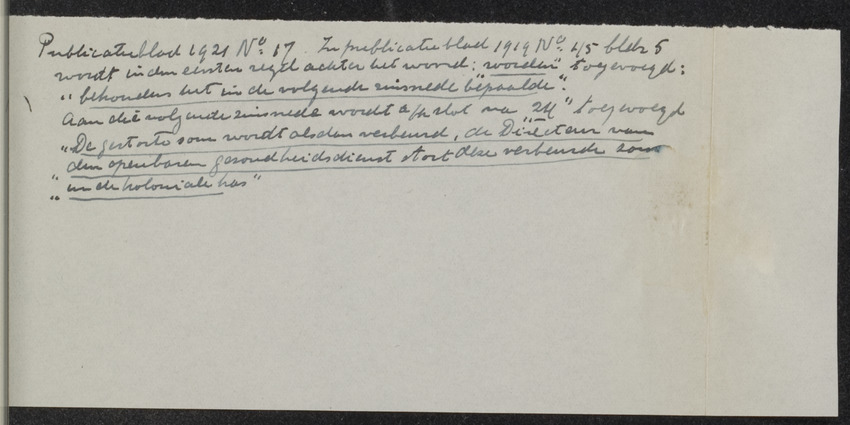 Publicatieblad 1921 No. 17. In publicatieblad 1919 No. 45 bldz 5
wordt in den eersten regel achter het woord: "worden" toegevoegd:
"behoudens het in de volgende zinsnede bepaalde".
Aan die volgende zinsnede wordt aan slot na "2e" toegevoegd
"De gestorte som wordt alsdan verbeurd, de Directeur van
den openbaren gezondheidsdienst stort deze verbeurde som
"in de koloniale kas"